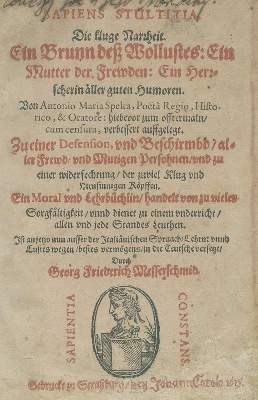 SAPIENS STULTITIA
Die kluge Narrheit.
Ein Brunn deß Wollustes: Ein
Mutter der Frewden: Ein Her-
scherin aller guten Humoren.
Von Antonio Maria Spelta, Poëta Regio, Histo-
rico, & Oratore: hiebevor zum offtermaln/
cum censura, verbessert außgelegt.
Zu einer Defension, vnd Beschirmbd/ al-
ler Frewd/ vnd Mutigen Personen/ vnd zu
einer widerfechtung/ der zuviel Klug vnd
Neusinnigen Köpffen.
Ein Moral vnd Lehrbüchlin/ handelt von zu vieler
Sorgfältigkeit/ vnnd dienet zu einem vnderricht/
allen vnd jede Standes Leuthen.
Ist anjetzo nun ausser der Italiänischen Spraach/ Lehrut vnnd
Lustes wegen/ bestes vermögens/ in die Teutsche versetzt/
Durch
Georg Friederich Messerschmid.
SAPIENTIA
CONSTANS
Gedruckt zu Straßburg/ bey Johann Carolo 1615.